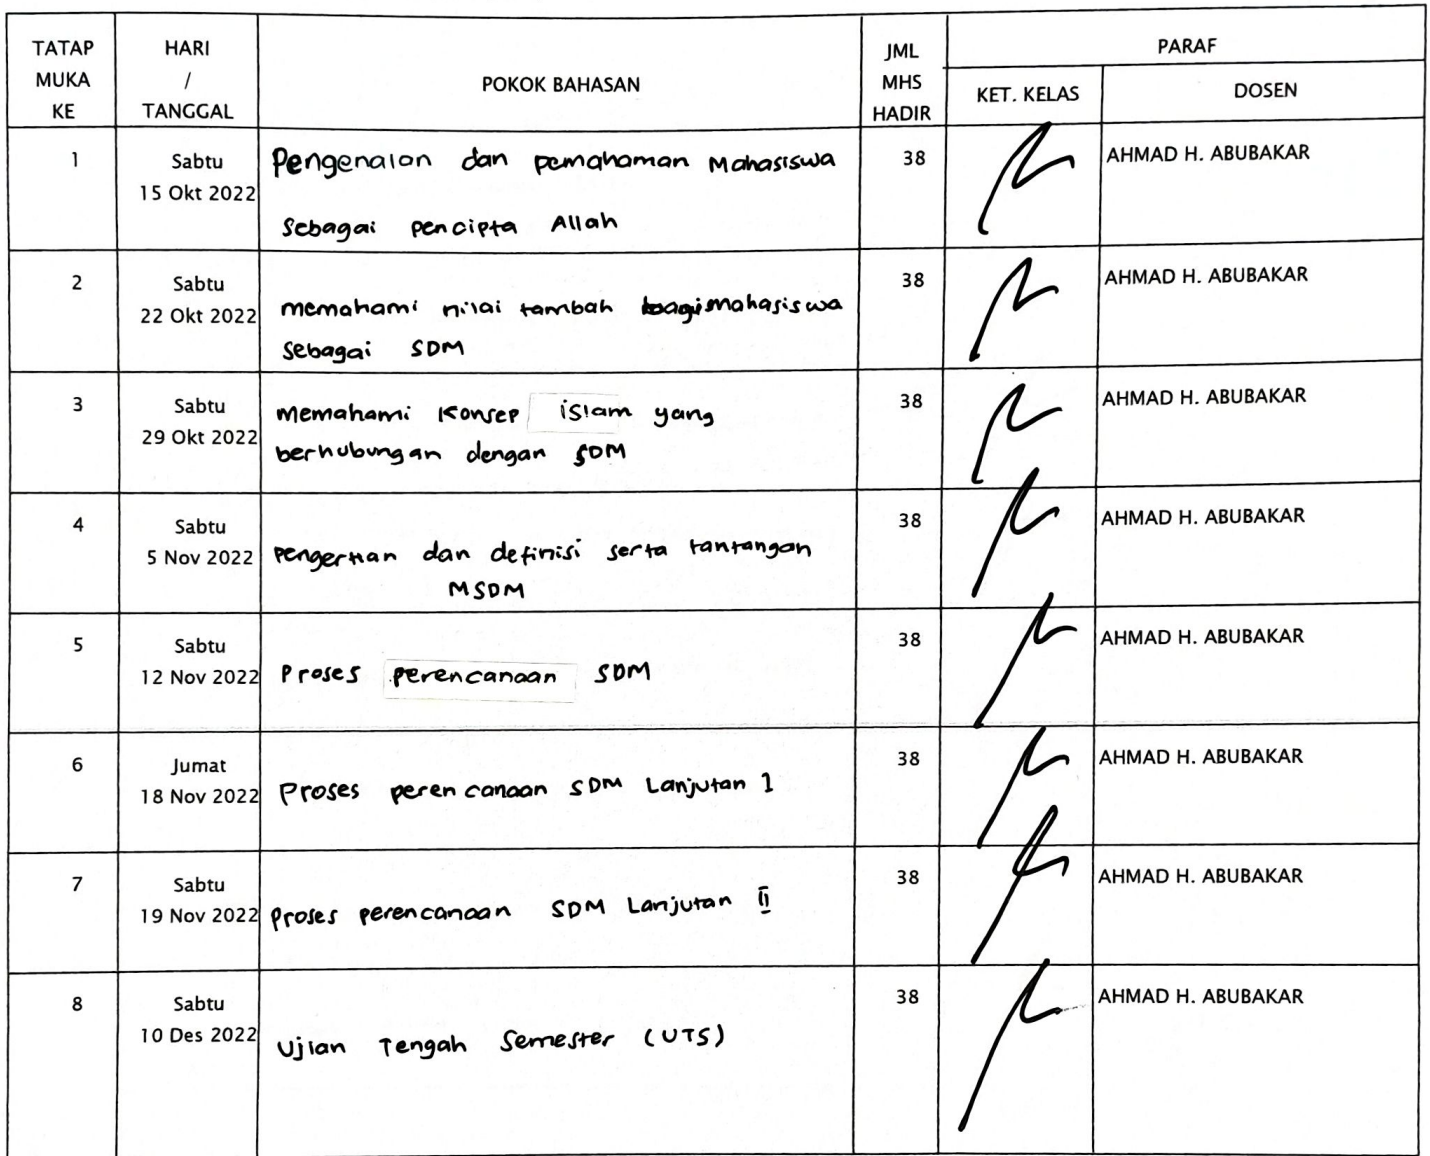 TATAP MUKA KE
HARI / TANGGAL
POKOK BAHASAN
JML MHS HADIR
PARAF
KET. KELAS
DOSEN
1
Sabtu
15 Okt 2022
Pengenalan dan pemahaman Mahasiswa
Sebagai pencipta Allah
38
AHMAD H. ABUBAKAR
2
Sabtu
22 Okt 2022
memahami nilai tambah bagi mahasiswa
Sebagai SDM
38
AHMAD H. ABUBAKAR
3
Sabtu
29 Okt 2022
Memahami Konsep islam yang
berhubungan dengan SDM
38
AHMAD H. ABUBAKAR
4
Sabtu
5 Nov 2022
Pengertian dan definisi serta tantangan
MSDM
38
AHMAD H. ABUBAKAR
5
Sabtu
12 Nov 2022
Proses perencanaan SDM
38
AHMAD H. ABUBAKAR
6
Jumat
18 Nov 2022
Proses perencanaan SDM Lanjutan I
38
AHMAD H. ABUBAKAR
7
Sabtu
19 Nov 2022
Proses perencanaan SDM Lanjutan II
38
AHMAD H. ABUBAKAR
8
Sabtu
10 Des 2022
Ujian Tengah Semester (UTS)
38
AHMAD H. ABUBAKAR